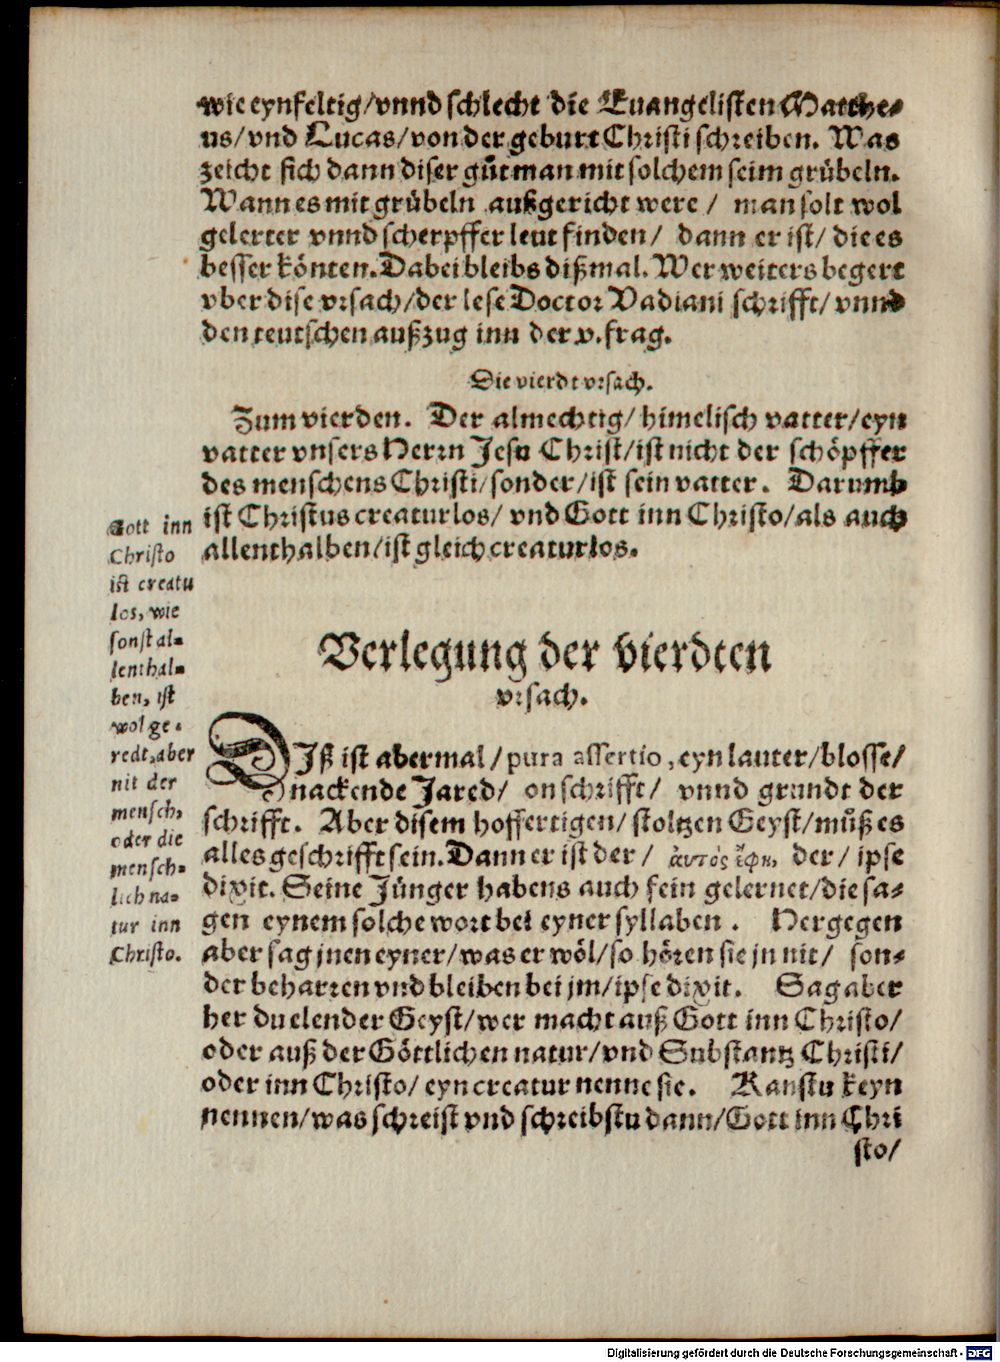 wie eynfeltig/vnnd schlecht die Euangelisten Matthe-
us/vnd Lucas/von der geburt Christi schreiben. Was
zeicht sich dann diser gůt man mit solchem seim grübeln.
Wann es mit grübeln außgericht were / man solt wol
gelerter vnnd scherpffer leut finden/ dann er ist/ die es
besser könten. Dabei bleibs dißmal. Wer weiters begert
vber dise vrsach/der lese Doctor Vadiani schrifft/ vnnd
den teutschen außzug inn der v. frag.
Die vierdt vrsach.
Zum vierden. Der almechtig/ himelisch vatter/eyn
vatter vnsers Herrn Jesu Christ/ist nicht der schöpffer
des menschens Christi/sonder/ist sein vatter. Darumb
ist Christus creaturlos/ vnd Gott inn Christo/als auch
allenthalben/ist gleich creaturlos.
Gott inn
Christo
ist creatu
los, wie
sonst al-
lenthal-
ben, ist
wol ge-
redt, aber
nit der
mensch,
oder die
mensch-
lich na-
tur inn
Christo.
Verlegung der vierdten
vrsach.
DIß ist abermal/pura assertio, eyn lauter/blosse/
nackende Jared/ on schrifft/ vnnd grundt der
schrifft. Aber disem hoffertigen/ stoltzen Geyst/můß es
alles geschrifft sein. Dann er ist der/ ἀυτός ἔφη, der/ ipse
dixit. Seine Jünger habens auch fein gelernet/die sa-
gen eynem solche wort bei eyner syllaben. Hergegen
aber sag jnen eyner/was er wöl/so hören sie jn nit/ son-
der beharren vnd bleiben bei jm/ipse dixit. Sag aber
her du elender Geyst/wer macht auß Gott inn Christo/
oder auß der Göttlichen natur/vnd Substantz Christi/
oder inn Christo/ eyn creatur nenne sie. Kanstu keyn
nennen/was schreist vnd schreibstu dann/Gott inn Chri
sto/
Digitalisierung gefördert durch die Deutsche Forschungsgemeinschaft - DFG